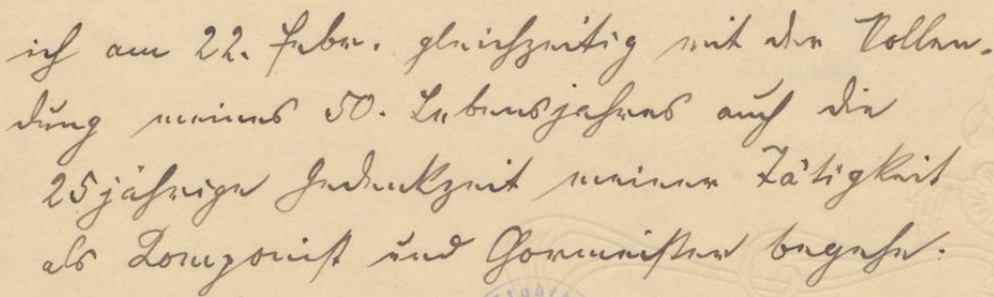 ich am 22. Febr. gleichzeitig mit der Vollen-
dung meines 50. Lebensjahres auch die
25jährige Gedenkzeit meiner Tätigkeit
als Componist und Chormeister begehe.